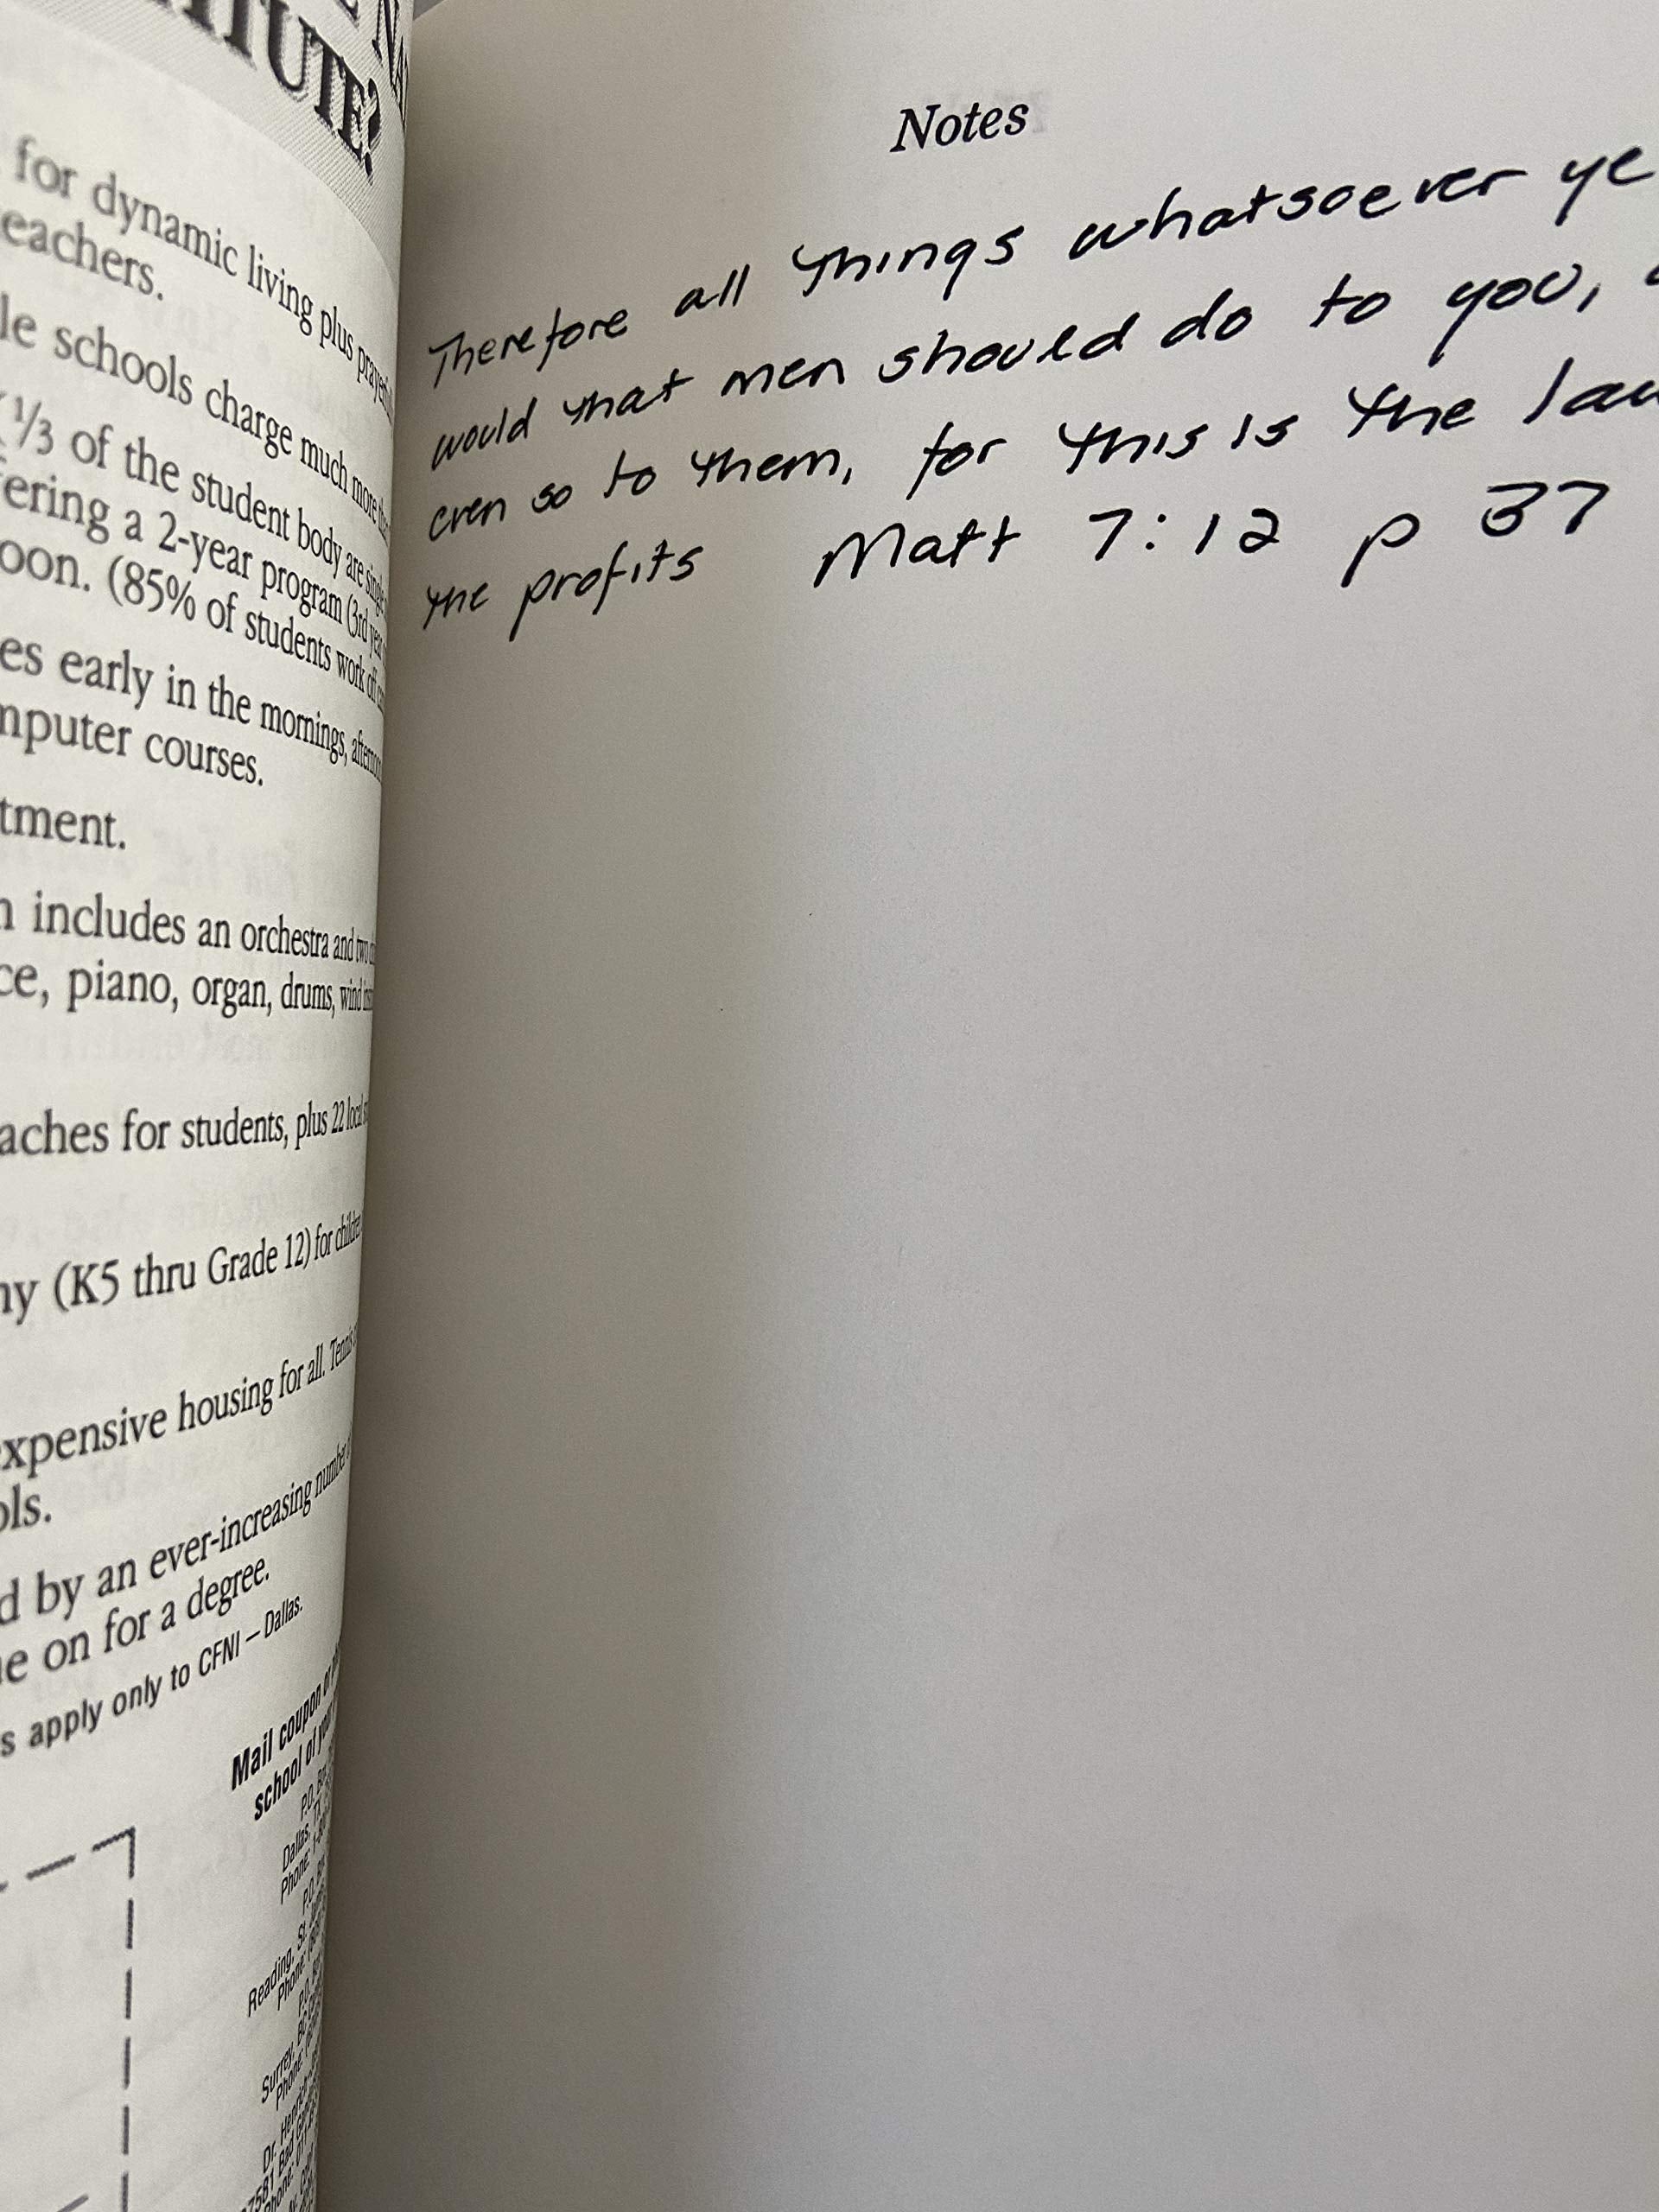 TUTE?
for dynamic living plus
eachers.
le schools charge much more
1/3 of the student body are single
ering a 2-year program (3rd year
oon. (85% of students work off
es early in the mornings,
mputer courses.
tment.
n includes an orchestra and two
ce, piano, organ, drums, wind
aches for students, plus 22 local
ny (K5 thru Grade 12) for children
xpensive housing for all. Tennis
ols.
d by an ever-increasing number
e on for a degree.
s apply only to CFNI – Dallas.
Mail coupon or
school of your
P.O. Box
Dallas, TX
Phone:
P.O. Box
Reading, St.
Phone:
Surrey, BC
Phone:
Dr.
Notes
Therefore all things whatsoever ye
would that men should do to you,
even so to them, for this is the law
the profits Matt 7:12 p 37